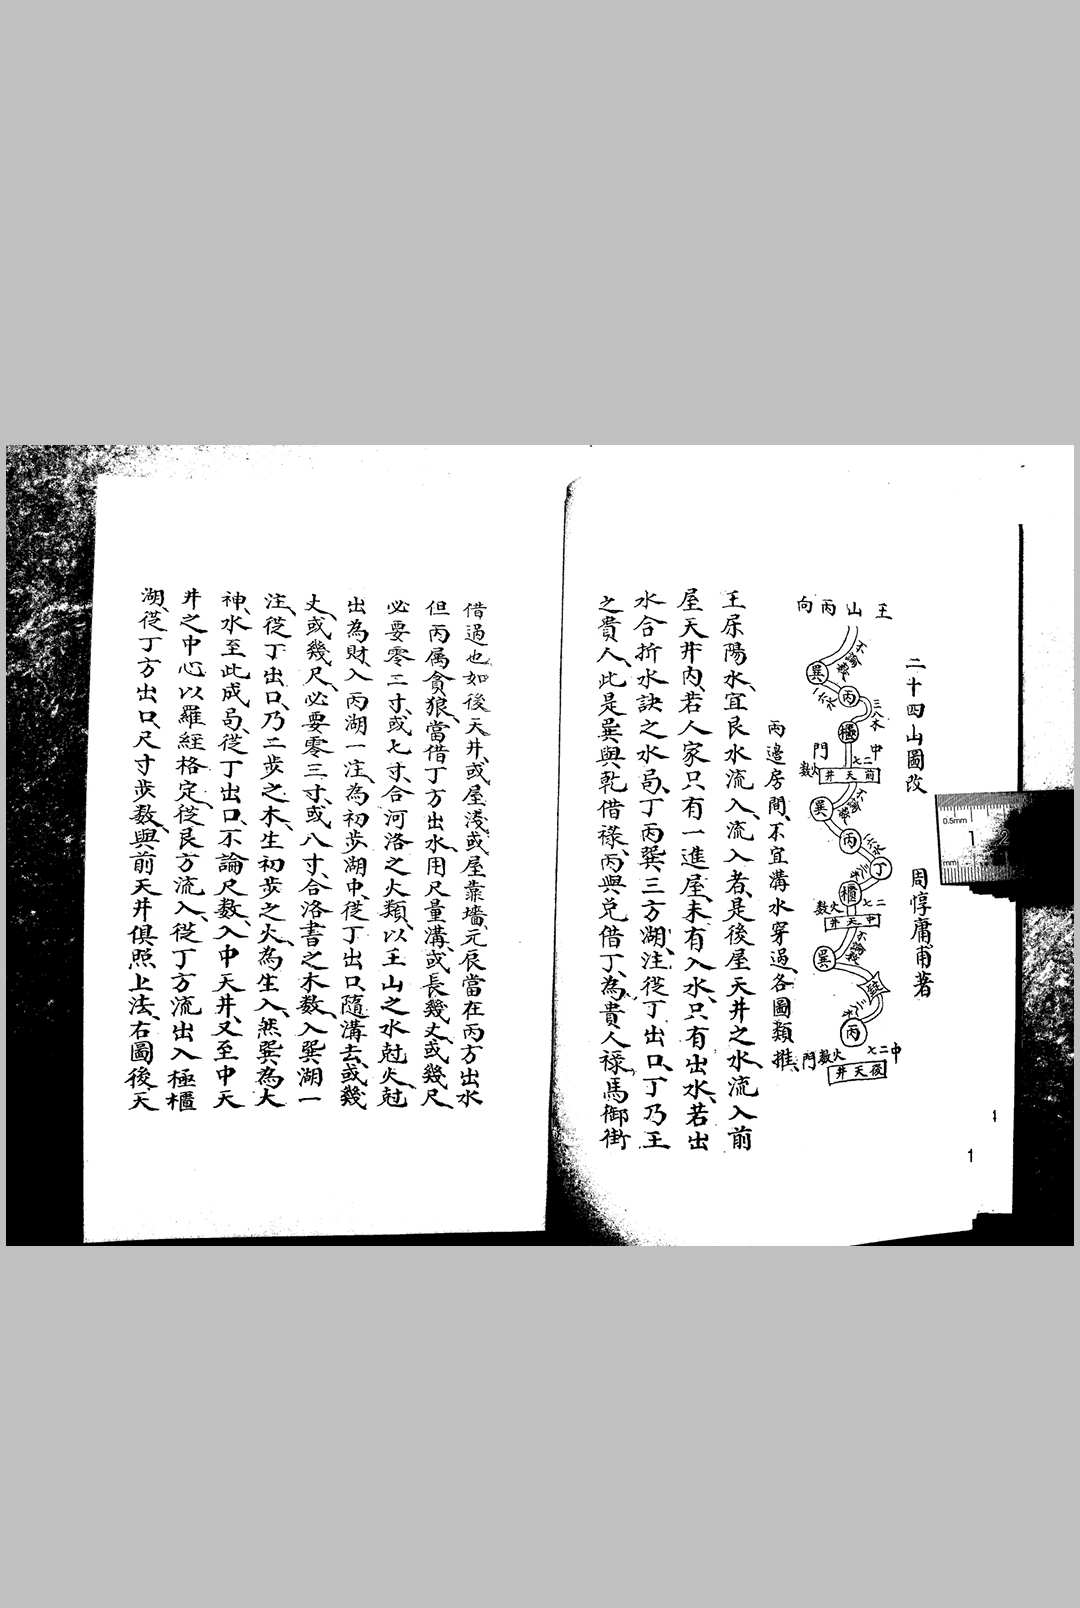 二十四山圖改
周惇庸甫著
壬山丙向
不論數
巽
一六水
丙
三八木
櫃
中
門
二七
火数
前天井
不論數
巽
丙
一六水
丁
櫃
二七
火数
中天井
不論數
巽
丙
中
二七
火数
門
後天井
兩邊房間、不宜溝水穿過、各圖類推、
壬屌陽水、宜艮水流入、流入者、是後屋天井之水流入前
屋天井内、若人家只有一進屋、未有入水、只有出水、若出
水合折水訣之水局、丁丙巽三方湖、注從丁出口、丁乃壬
之貴人、此是巽與乾借祿、丙與兌借丁、為貴人祿馬御街
借過也、如後天井、或屋淺、或屋靠墻、元辰當在丙方出水
但丙屬貪狼、當借丁方出水、用尺量溝、或長幾丈、或幾尺、
必要零二寸、或七寸、合河洛之火類、以壬山之水尅火、尅
出為財、入丙湖一注、為初步湖中、從丁出口、隨溝去、或幾
丈、或幾尺、必要零三寸、或八寸、合洛書之木数、入巽湖一
注、從丁出口、乃二步之木、生初步之火、為生入、然巽為大
神、水至此成局、從丁出口、不論尺数、入中天井、又至中天
井之中心、以羅經格定、從艮方流入、從丁方流出、入極櫃
湖、從丁方出口、尺寸步数、與前天井俱照上法、右圖後天
1